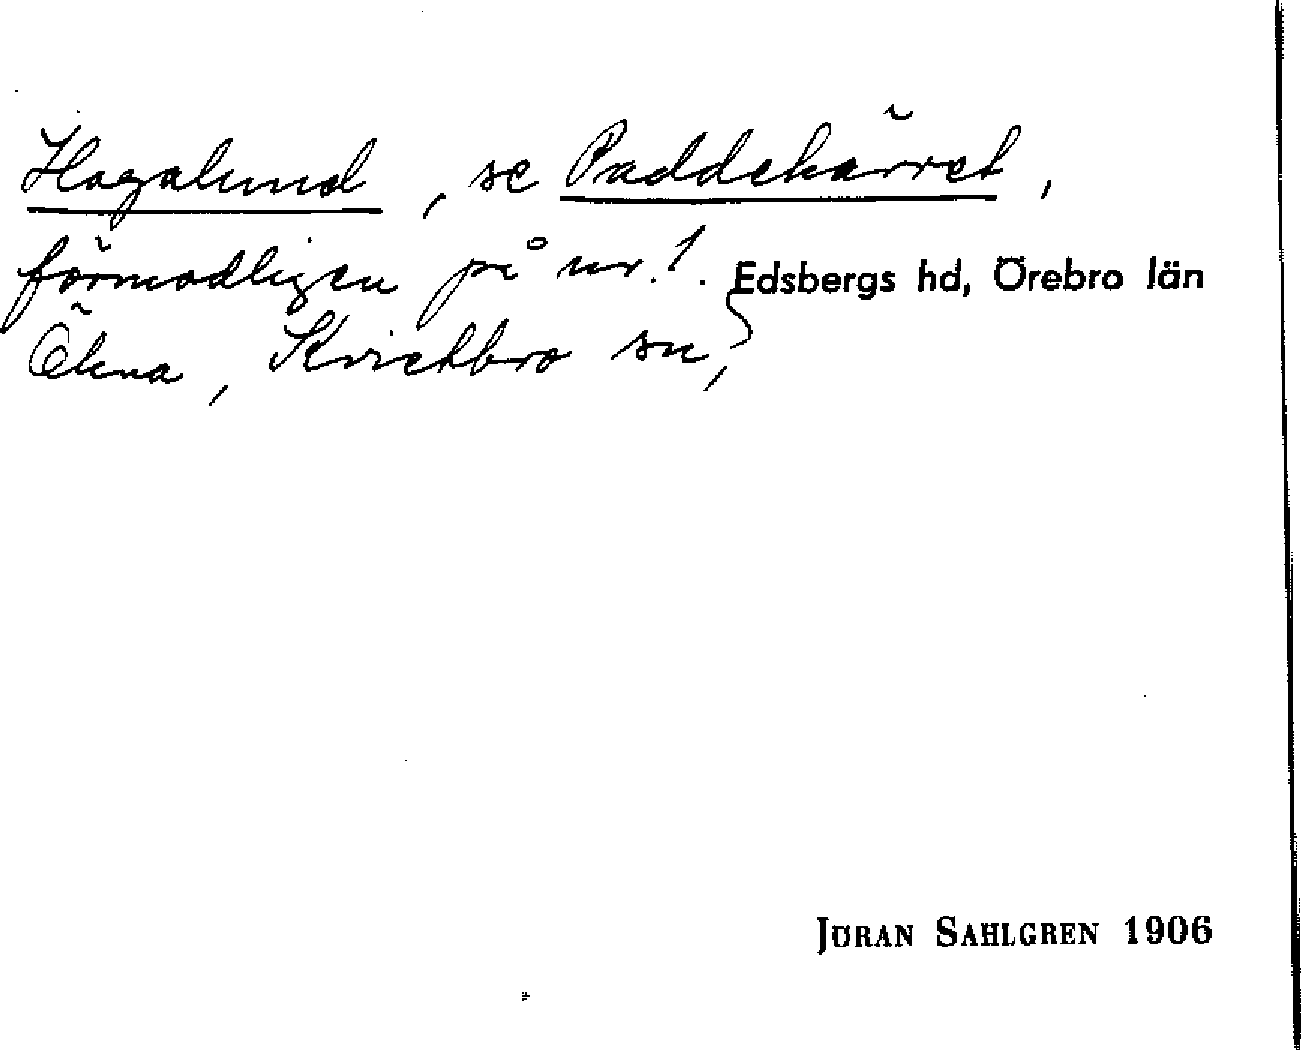 Hagalund, se Paddekärret,
förmodligen på nr. 1. Edsbergs hd, Örebro län
Ökna, Kvistbro sn,
JÖRAN SAHLGREN 1906